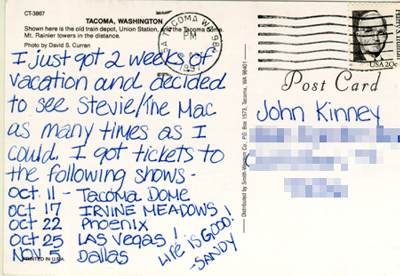 CT-3867
TACOMA, WASHINGTON
Shown here is the old train depot, Union Station, and the Tacoma Dome.
Mt. Rainier towers in the distance.
Photo by David S. Curran
TACOMA WA 984
PM
1991
USA 20c
Post Card
I just got 2 weeks of
vacation and decided
to see Stevie/the Mac
as many times as I
could. I got tickets to
the following shows-
OCT 11 - TACOMA DOME
OCT 17 IRVINE MEADOWS!
OCT 22 Phoenix
OCT 25 LAS VEGAS!
NOV 5 Dallas
LIFE IS GOOD!
-SANDY
PRINTED IN U.S.A.
Distributed by Smith-Western Co. P.O. BOX 1573, Tacoma, WA 98401
John Kinney